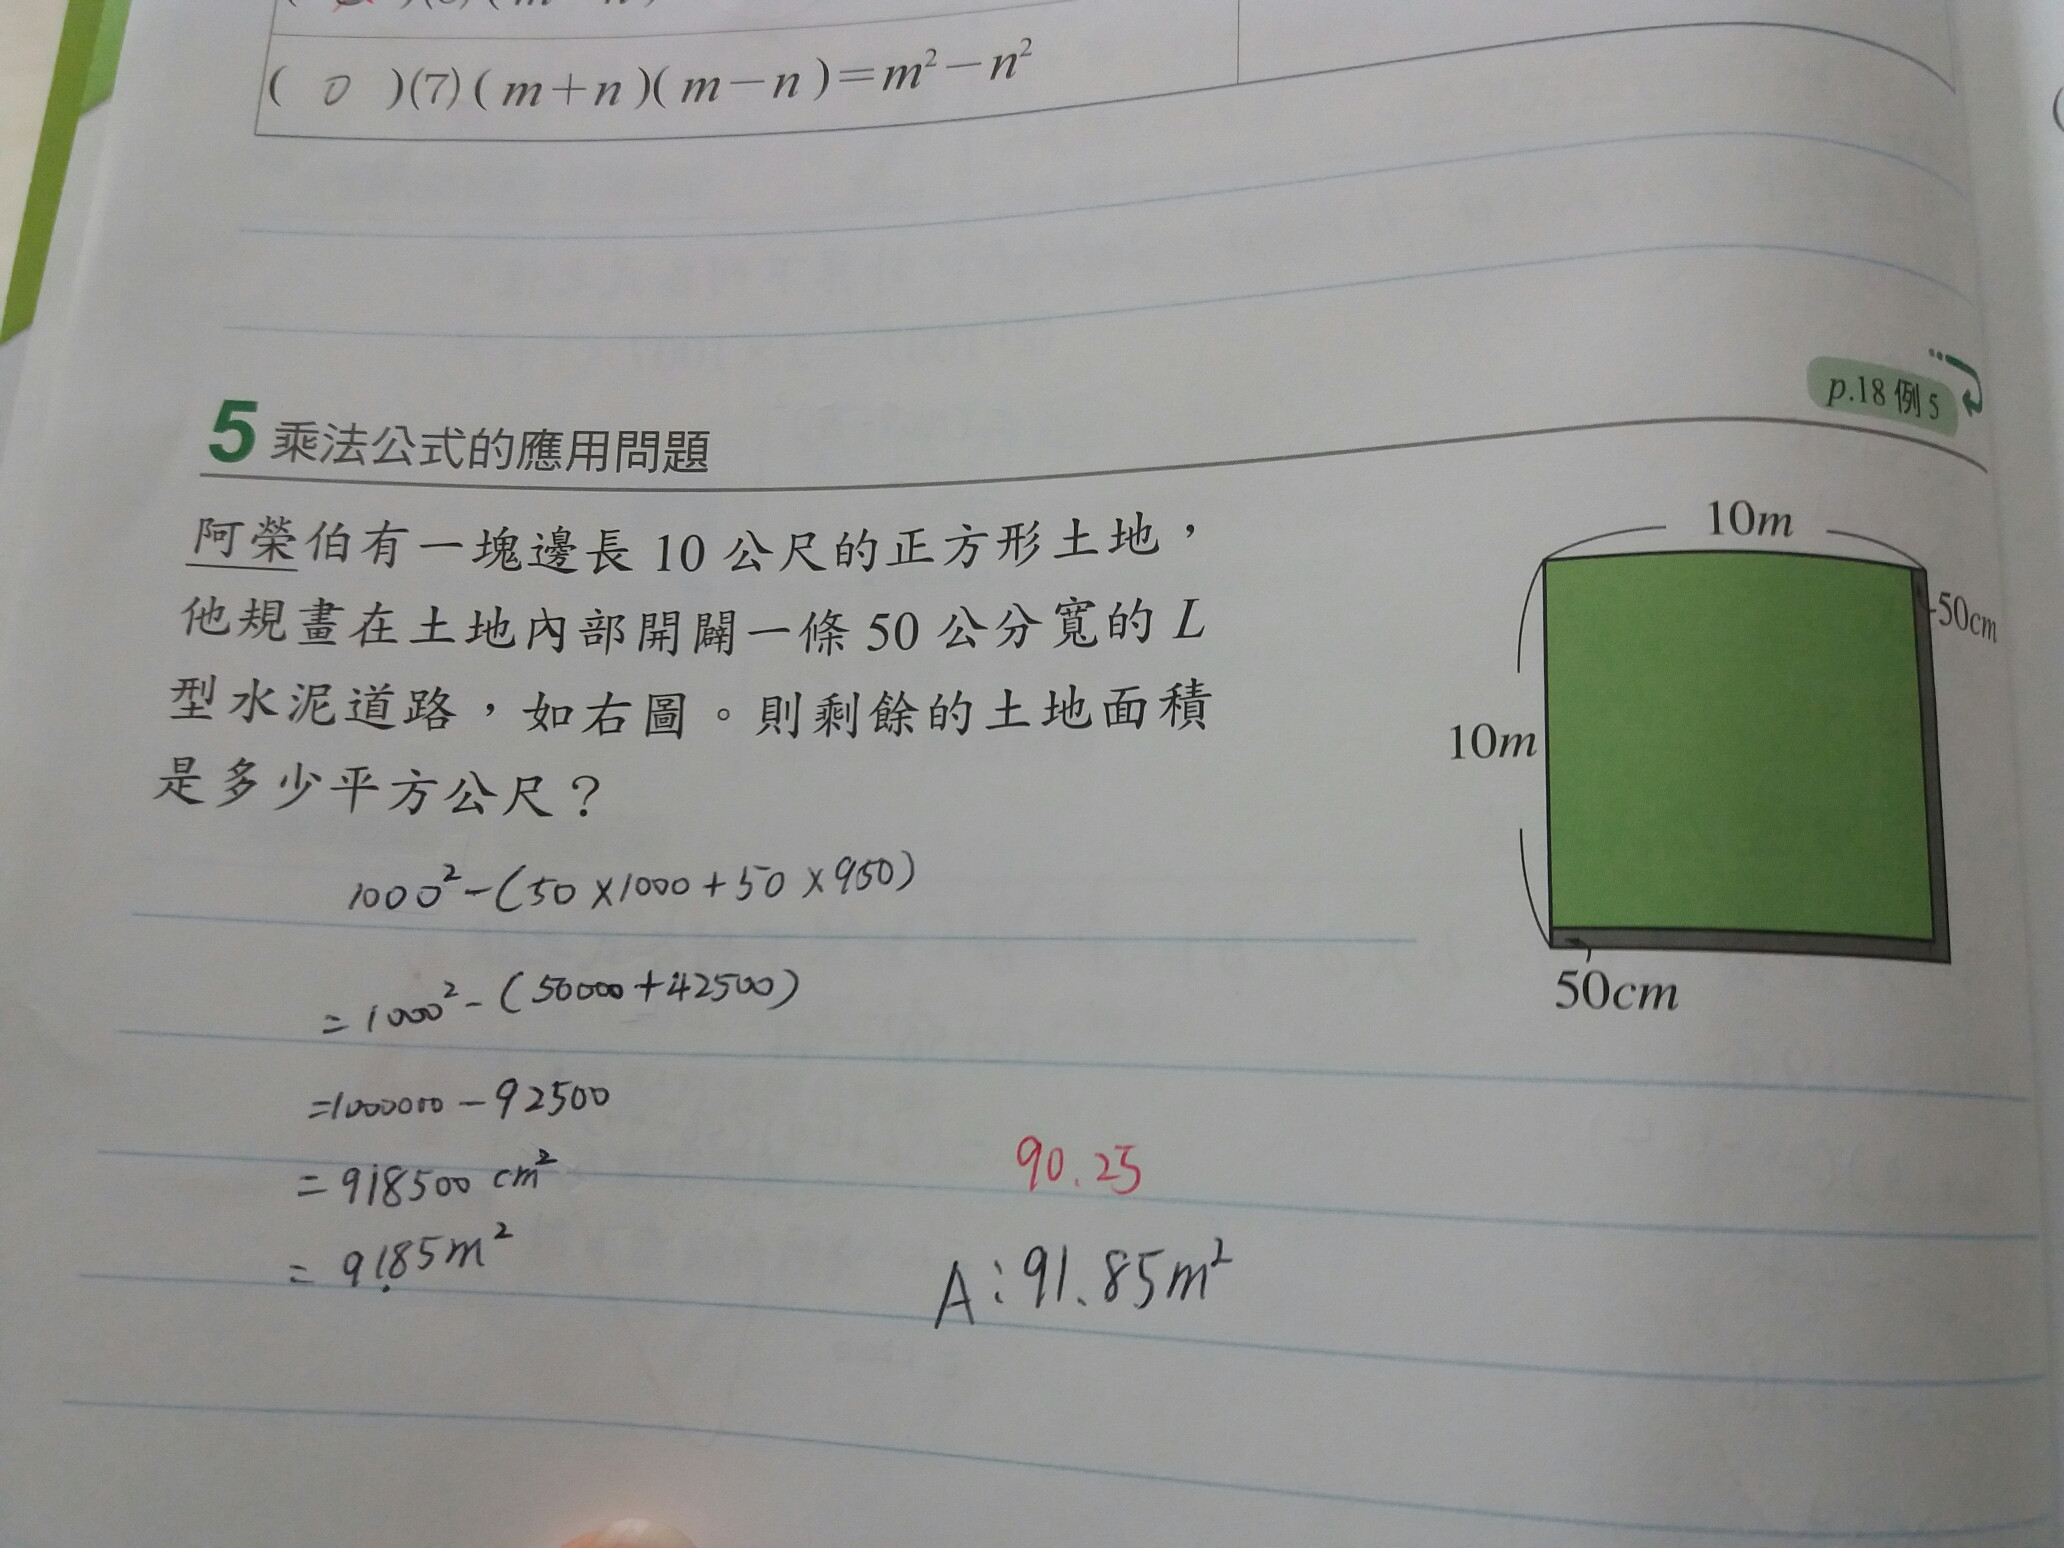 (7)(m+n)(m-n)=m²-n²
( 0 )
p.18 例5
5 乘法公式的應用問題
阿榮伯有一塊邊長10公尺的正方形土地，
他規畫在土地內部開闢一條50公分寬的L
型水泥道路，如右圖。則剩餘的土地面積
是多少平方公尺？
10m
50cm
10m
50cm
1000²-(50×1000+50×950)
=1000²-(50000+42500)
=1000000-92500
=918500 cm²
=91.85m²
90.25
A:91.85m²